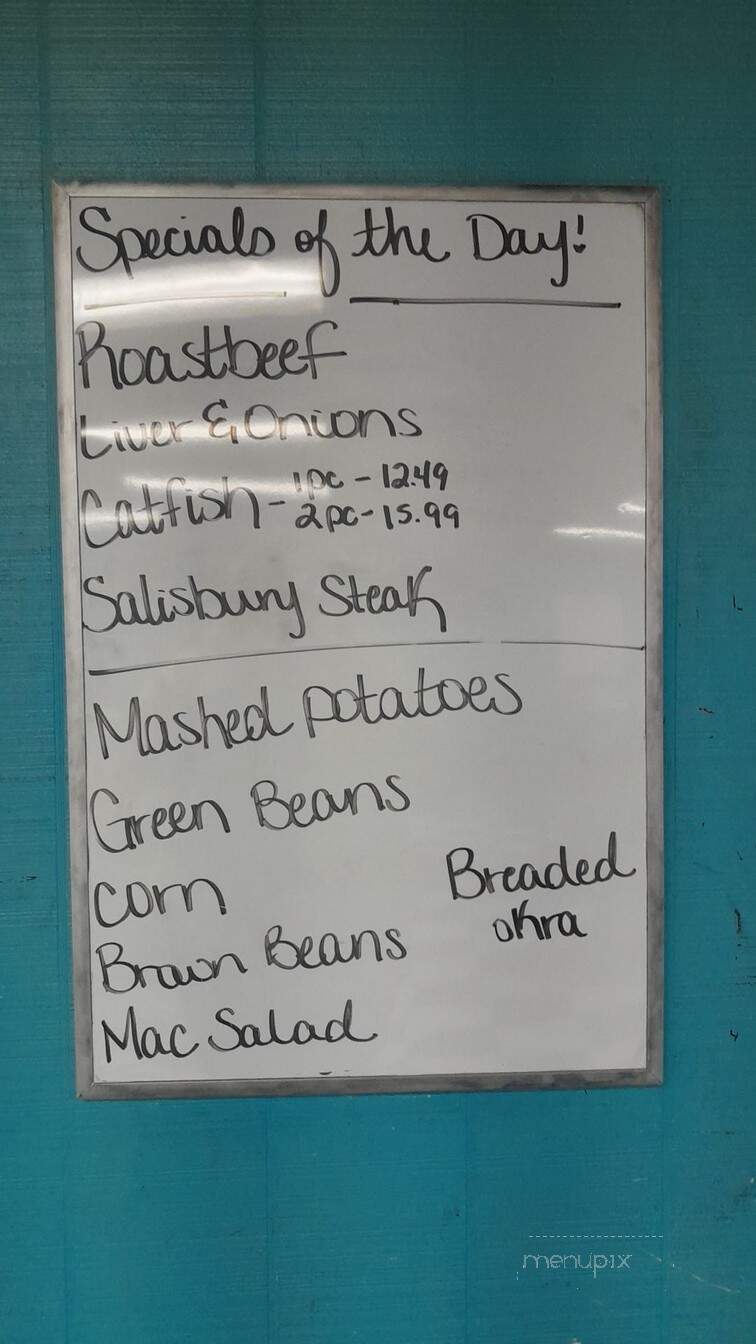 Specials of the Day!
Roastbeef
Liver & Onions
Catfish - 1pc - 12.49
2pc - 15.99
Salisbury Steak
Mashed potatoes
Green Beans
Corn
Breaded
okra
Brown Beans
Mac Salad
menupix